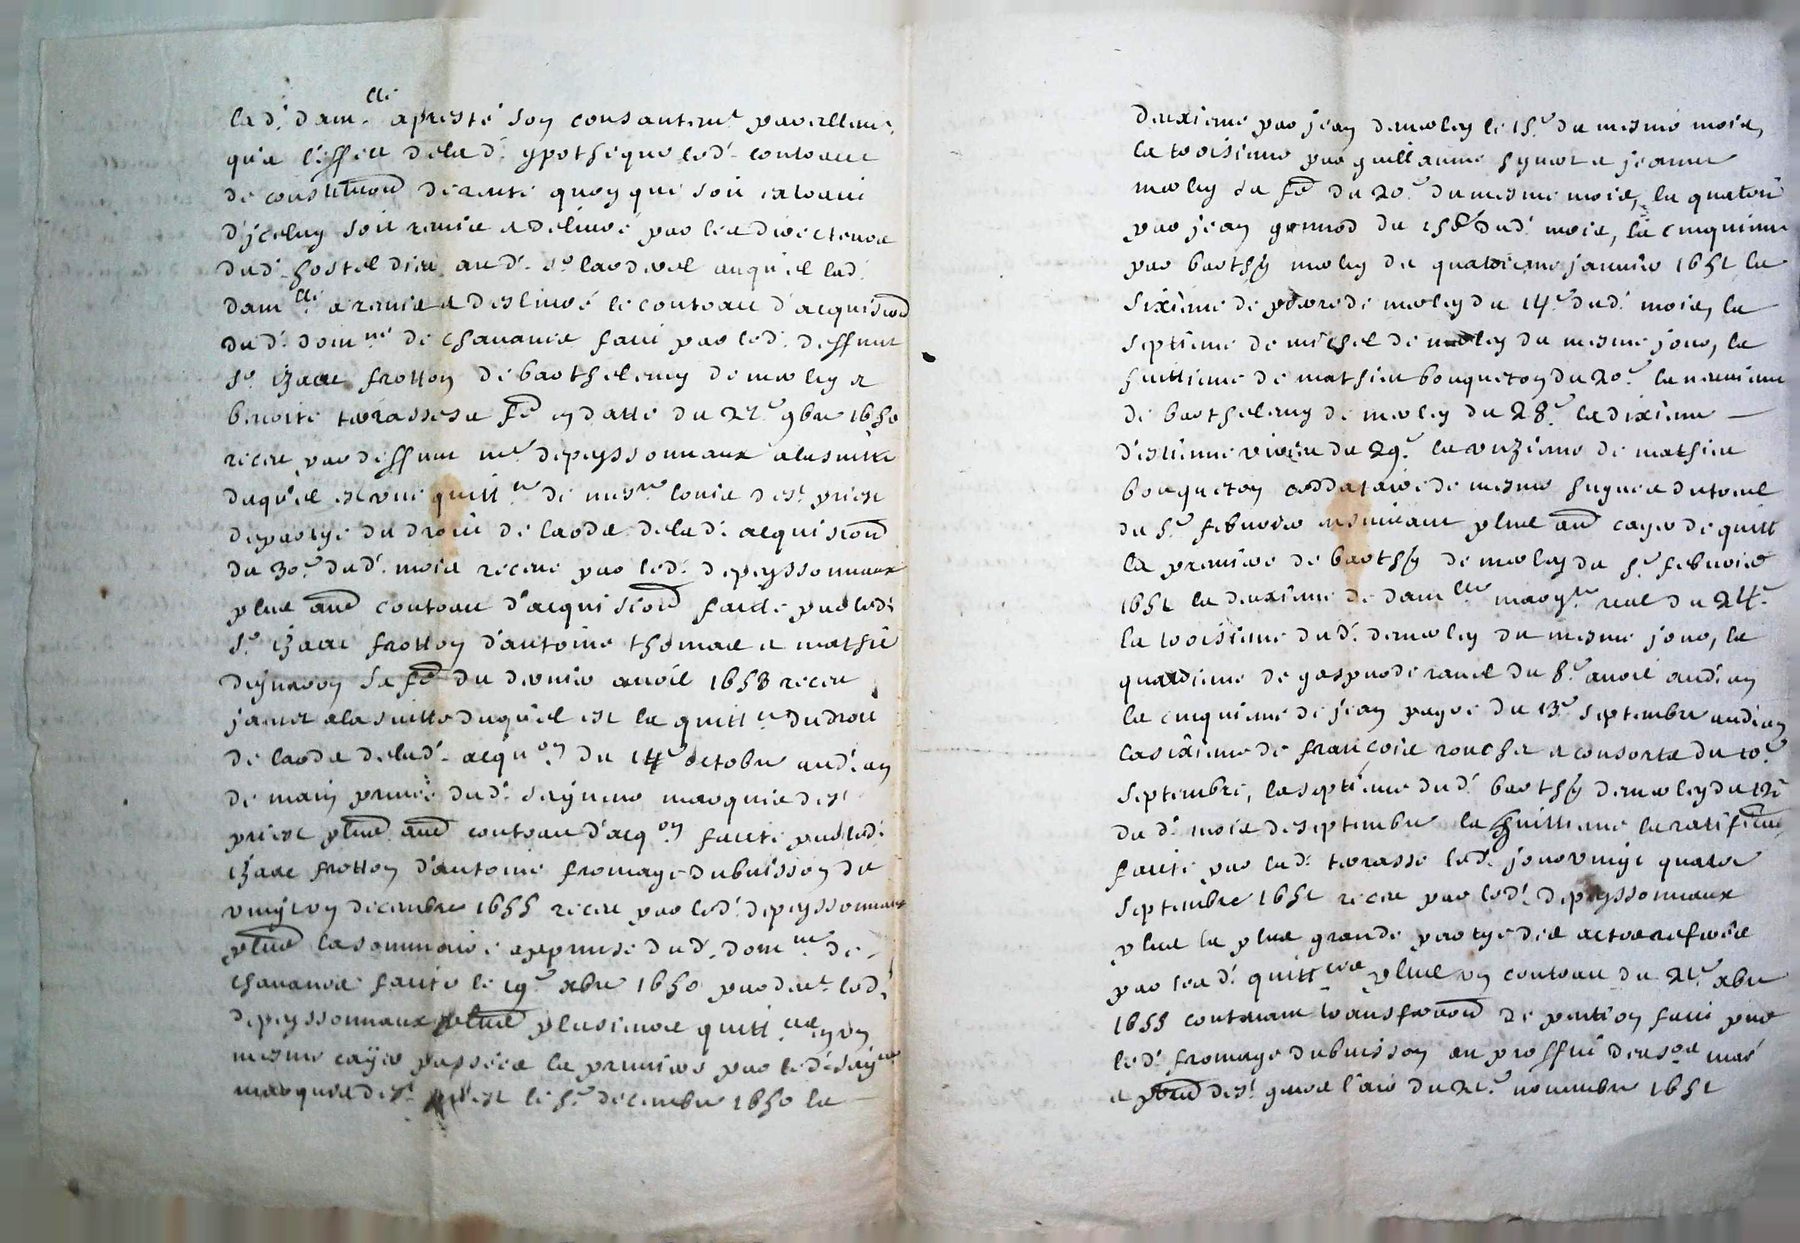 lad.t dam.lle apresté son consantem.t par ellem.t
qu'a l'effect delad.t ypotheque led.t contract
de constitution de rante quoy que soit extraict
d'jceluy soit remis et deliuré par les directeurs
dud.t hostel dieu aud.t s.r lardivel auquel lad.t
dam.lle a remis et desliuré le contract d'acquisition
dud.t dom.ne de chauanes faict par led.t deffunt
s.r izaac frotton de barthelemy de merley et
benoite terrasse sa fe en datte du 22.e 9bre 1650
receu par deffunt m.e depeyssonneaux a la suitte
duquel est vne quitt.ce de mes.re louis de s.t priest
departye du droit de laods delad.t acquisition
du 30.e dud.t mois receue par led.t depeyssonneaux
plus autre contract d'acquisition faicte par led.t
s.r izaac frotton d'antoine thomas et mathie
deynaron sa fe du dernier auril 1653 receu
janet a la suitte duquel est la quitt.ce du droit
de laods delad.t acqu.on du 14.e octobre aud.t an
de main priuée dud.t seigneur marquis de s.t
priest plus autre contract d'acq.on faicte par led.t
izaac frotton d'antoine fromage dubuisson du
vingt vn decembre 1655 receu par led.t depeyssonneaux
plus la sommaire apprinse dud.t dom.ne de
chauanes faicte le 19.e xbre 1650 par de.t led.t
depeyssonneaux plus plusieurs quitt.ces en vn
mesme cayer passées la premiere par led.t seig.r
marquis de s.t priest le 5.e decembre 1650 la
deuxieme par jean demerley le 15.e du mesme mois,
la troisieme par guillaume hymer et jeanne
merley sa fe du 20.e du mesme mois, la quatri
par jean grimod du dud.t mois, la cinquieme
par barth.y merley du quatrieme januier 1651 la
sixieme de pierre de merley du 14.e dud.t mois, la
septieme de michel de merley du mesme jour, la
huittieme de mathieu bouqueton du 20.e la neuuieme
de barthelemy de merley du 28.e la dixieme
d'estienne viuien du 29.e la vnzieme de mathieu
bouqueton de mesme
du 5.e feburier plus autre cayer de quitt
la premiere de barth.y de merley du 5.e feburier
1651 la deuxieme de dam.lle marg.te real du 24.e
la troisieme dud.t demerley du mesme jour, la
quatrieme de gaspard rauel du 8.e auril aud.t an
la cinquieme de jean pagre du 13.e septembre aud.t an
la sixieme de francois roucher et consorts du 10.e
septembre, la septieme dud.t barth.y demerley du 19.e
dud.t mois de septembre la huittieme la ratification
faicte par lad.t terrasse led.t jour vingt quatre
septembre 1651 receu par led.t depeyssonneaux
plus la plus grande partye des actes
par lesd.t quitt.ces plus vn contract du 21.e xbre
1655 contenant de faict par
led.t fromage dubuisson au proffit des
et de s.t du 21.e nouembre 1651